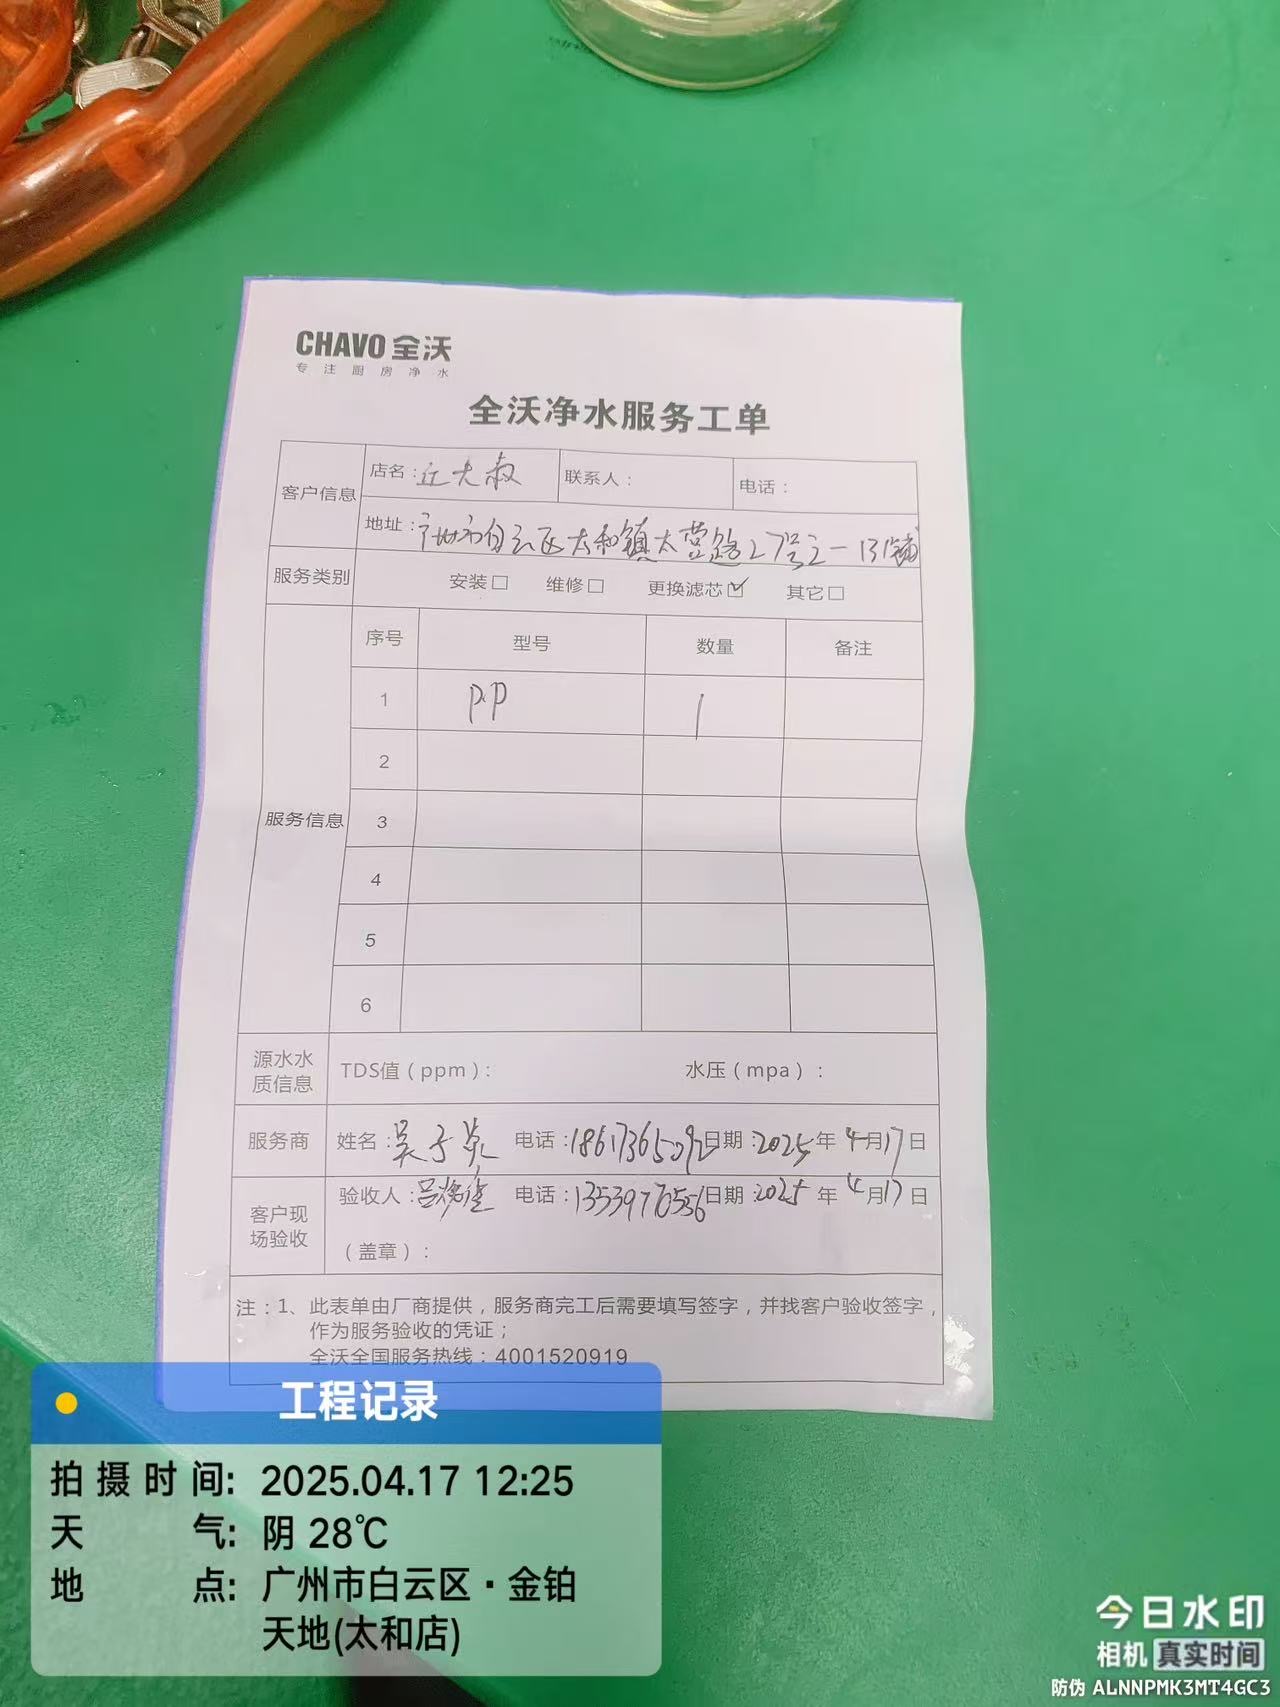 CHAVO 全沃
专注厨房净水
全沃净水服务工单
客户信息
店名：丘大叔
联系人：
电话：
地址：广州市白云区太和镇太营路27号之一131铺
服务类别
安装□ 维修□ 更换滤芯☑ 其它□
服务信息
序号 型号 数量 备注
1 PP 1
2
3
4
5
6
源水水质信息
TDS值（ppm）： 水压（mpa）：
服务商
姓名：吴子 电话：18617365092 日期：2025年4月17日
客户现场验收
验收人：吕 电话：13539776556 日期：2025年4月17日
（盖章）：
注：1、此表单由厂商提供，服务商完工后需要填写签字，并找客户验收签字，
作为服务验收的凭证；
全沃全国服务热线：4001520919
工程记录
拍摄时间：2025.04.17 12:25
天气：阴 28℃
地点：广州市白云区·金铂
天地(太和店)
今日水印
相机 真实时间
防伪 ALNNPMK3MT4GC3